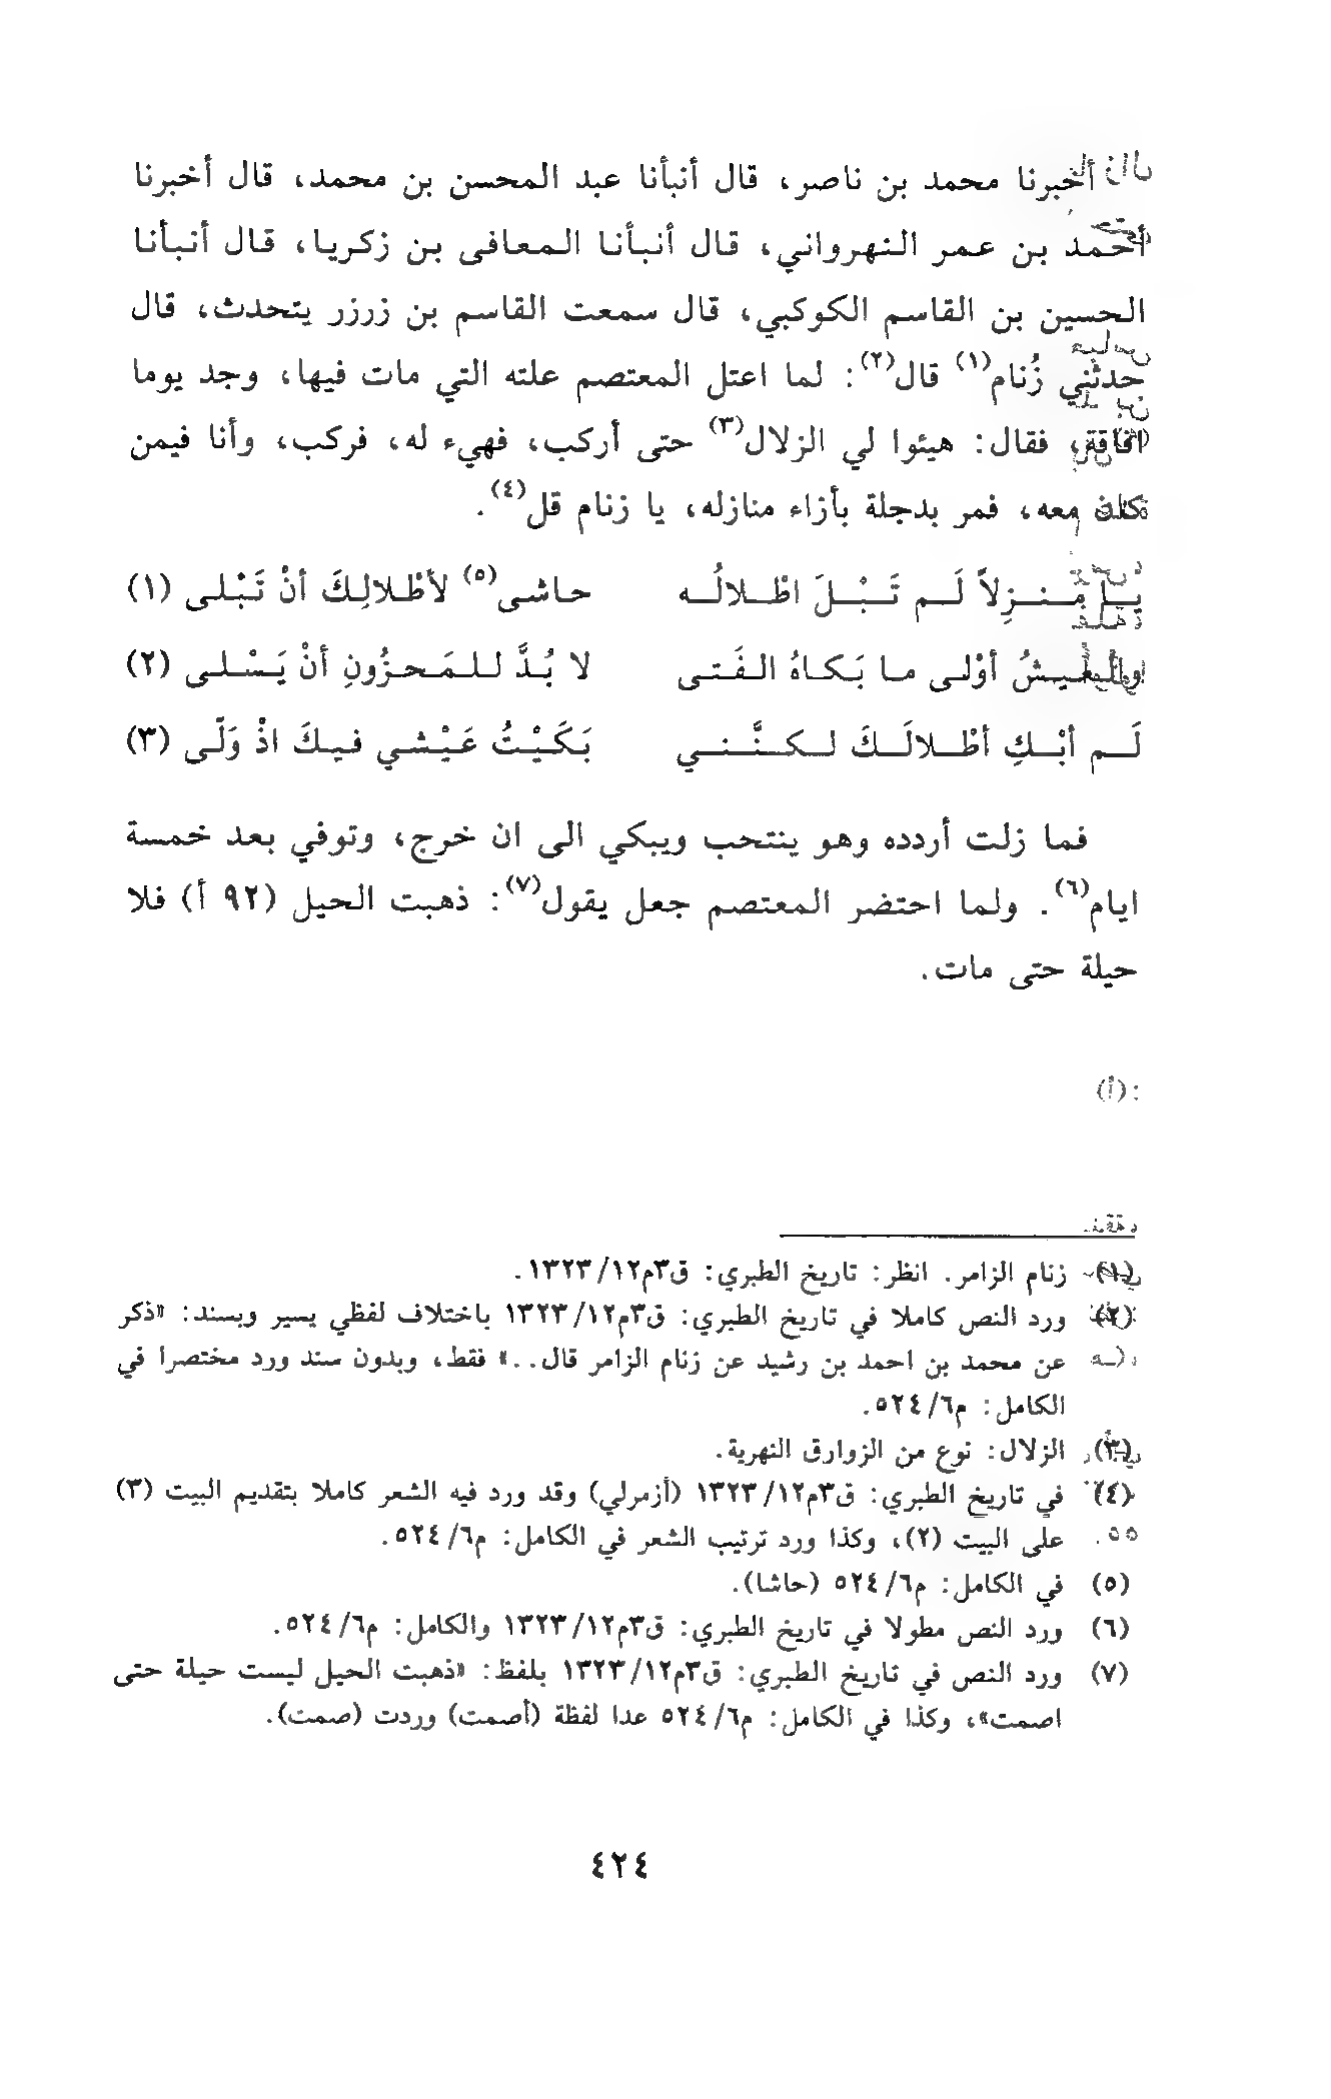 أخبرنا محمد بن ناصر، قال أنبأنا عبد المحسن بن محمد، قال أخبرنا
أحمد بن عمر النهرواني، قال أنبأنا المعافى بن زكريا، قال أنبأنا
الحسين بن القاسم الكوكبي، قال سمعت القاسم بن زرزر يتحدث، قال
حدثني زُنام(١) قال(٢): لما اعتل المعتصم علته التي مات فيها، وجد يوما
افاقة، فقال: هيئوا لي الزلال(٣) حتى أركب، فهيء له، فركب، وأنا فيمن
كان معه، فمر بدجلة بأزاء منازله، يا زنام قل(٤).
يا مَنزِلاً لَم تَبْلَ اطْلالُه حاشى(٥) لأطْلالِكَ أنْ تَبْلى (١)
والعَيشُ أوْلى ما بَكاهُ الفَتى لا بُدَّ للمَحزُونِ أنْ يَسْلى (٢)
لَم أبْكِ أطْلالَكَ لكنَّني بَكَيْتُ عَيْشي فيكَ اذْ وَلّى (٣)
فما زلت أردده وهو ينتحب ويبكي الى ان خرج، وتوفي بعد خمسة
ايام(٦). ولما احتضر المعتصم جعل يقول(٧): ذهبت الحيل (٩٢ أ) فلا
حيلة حتى مات.
(أ):
(١) زنام الزامر. انظر: تاريخ الطبري: ق٣م١٢/ ١٣٢٣.
(٢) ورد النص كاملا في تاريخ الطبري: ق٣م١٢/ ١٣٢٣ باختلاف لفظي يسير وبسند: «ذكر
عن محمد بن احمد بن رشيد عن زنام الزامر قال..» فقط، وبدون سند ورد مختصرا في
الكامل: م٦/ ٥٢٤.
(٣) الزلال: نوع من الزوارق النهرية.
(٤) في تاريخ الطبري: ق٣م١٢/ ١٣٢٣ (أزمرلي) وقد ورد فيه الشعر كاملا بتقديم البيت (٣)
على البيت (٢)، وكذا ورد ترتيب الشعر في الكامل: م٦/ ٥٢٤.
(٥) في الكامل: م٦/ ٥٢٤ (حاشا).
(٦) ورد النص مطولا في تاريخ الطبري: ق٣م١٢/ ١٣٢٣ والكامل: م٦/ ٥٢٤.
(٧) ورد النص في تاريخ الطبري: ق٣م١٢/ ١٣٢٣ بلفظ: «ذهبت الحيل ليست حيلة حتى
اصمت»، وكذا في الكامل: م٦/ ٥٢٤ عدا لفظة (أصمت) وردت (صمت).
٤٢٤